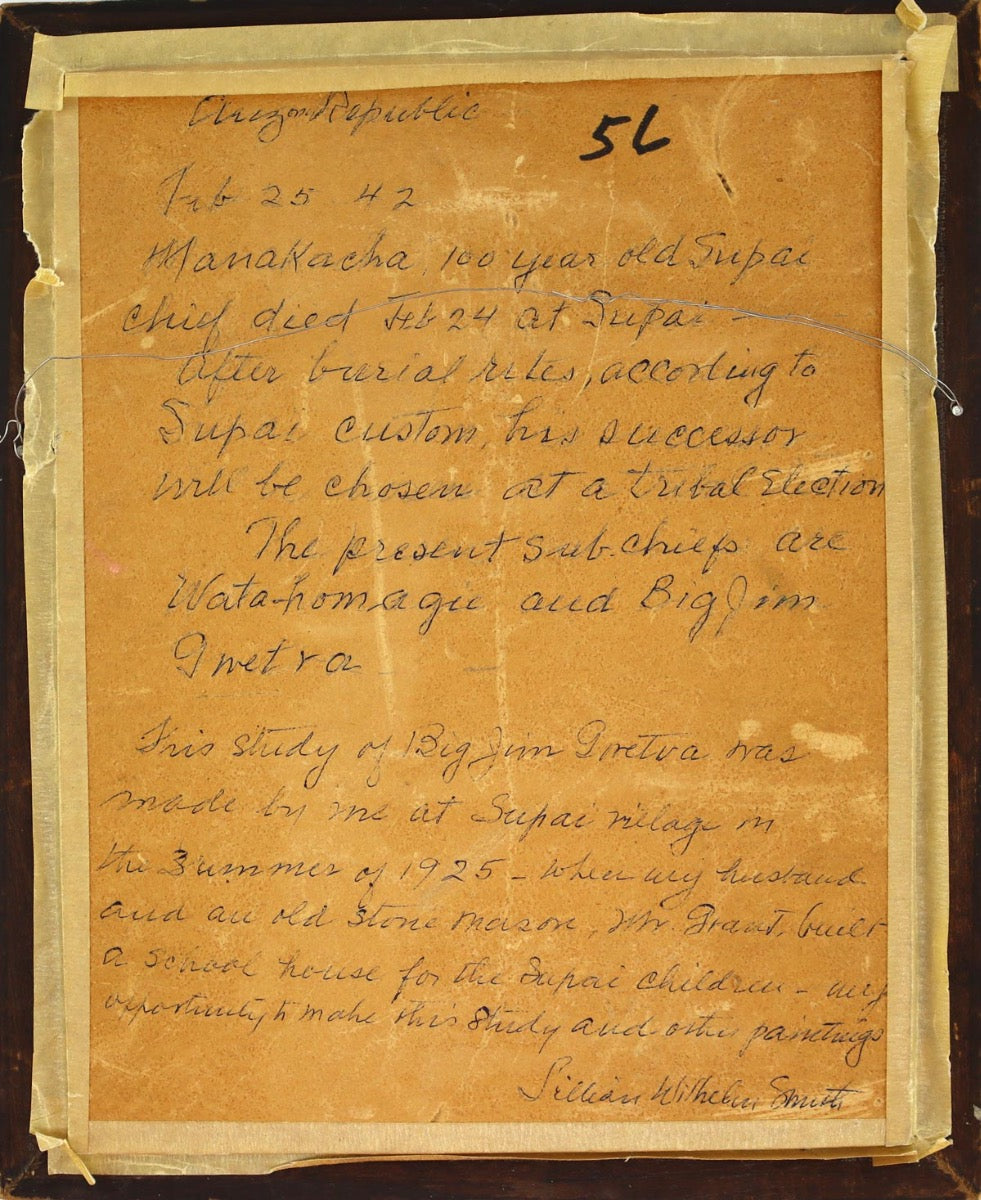 Arizon Republic
56
Feb 25 42
Manakacha, 100 year old Supai
chief died Feb 24 at Supai -
After burial rites, according to
Supai custom, his successor
will be chosen at a tribal Election
The present sub-chiefs are
Wata-homagie and Big Jim
Gwetva
This study of Big Jim Gwetva was
made by me at Supai village in
the Summer of 1925 - when my husband
and an old stone mason, Mr. Grant, built
a school house for the Supai children - my
opportunity to make this study and other paintings
Lillian Wilhelm Smith